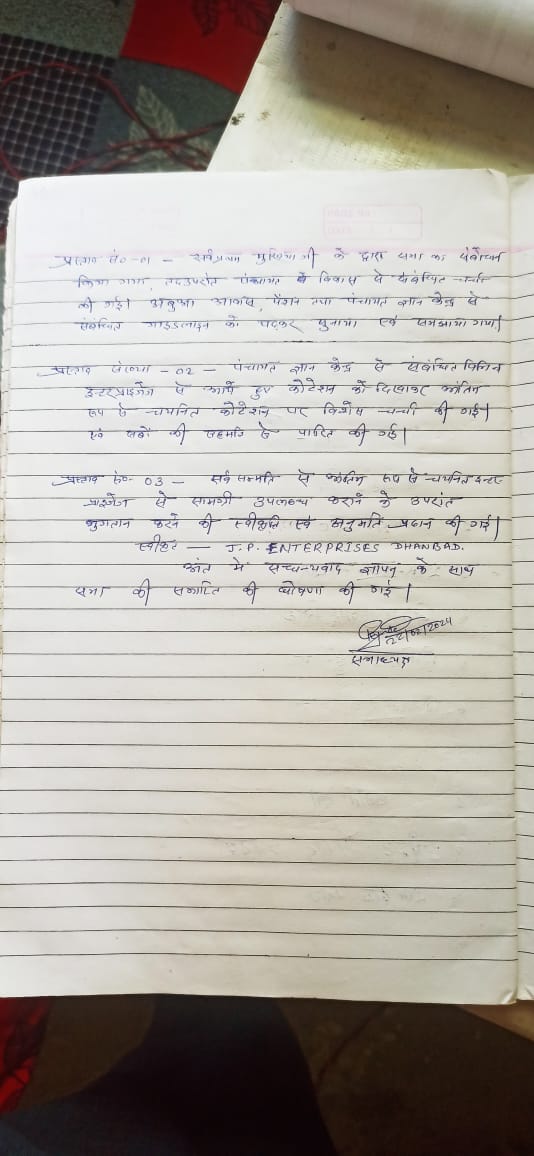 प्रस्ताव सं०-01 - सर्वप्रथम मुखिया जी के द्वारा सभा का संबोधन
किया गया, तदउपरांत पंचायत के विकास से संबंधित चर्चा
की गई। अबुआ आवास, पेंशन तथा पंचायत ज्ञान केन्द्र से
संबंधित गाइडलाइन को पढ़कर सुनाया एवं समझाया गया।
प्रस्ताव संख्या - 02 - पंचायत ज्ञान केन्द्र से संबंधित विभिन्न
इन्टरप्राइजेज से आये हुए कोटेशन को दिखाकर अंतिम
रूप से चयनित कोटेशन पर विशेष चर्चा की गई।
एवं सबों की सहमति से पारित की गई।
प्रस्ताव सं०- 03 - सर्व सम्मति से अंतिम रूप से चयनित इन्टर-
प्राइजेज से सामग्री उपलब्ध कराने के उपरांत
भुगतान करने की स्वीकृति एवं अनुमति प्रदान की गई।
स्वीकृत - J.P. ENTERPRISES DHANBAD.
अंत में सधन्यवाद ज्ञापन के साथ
सभा की समाप्ति की घोषणा की गई।
22/02/2024
सभाध्यक्ष